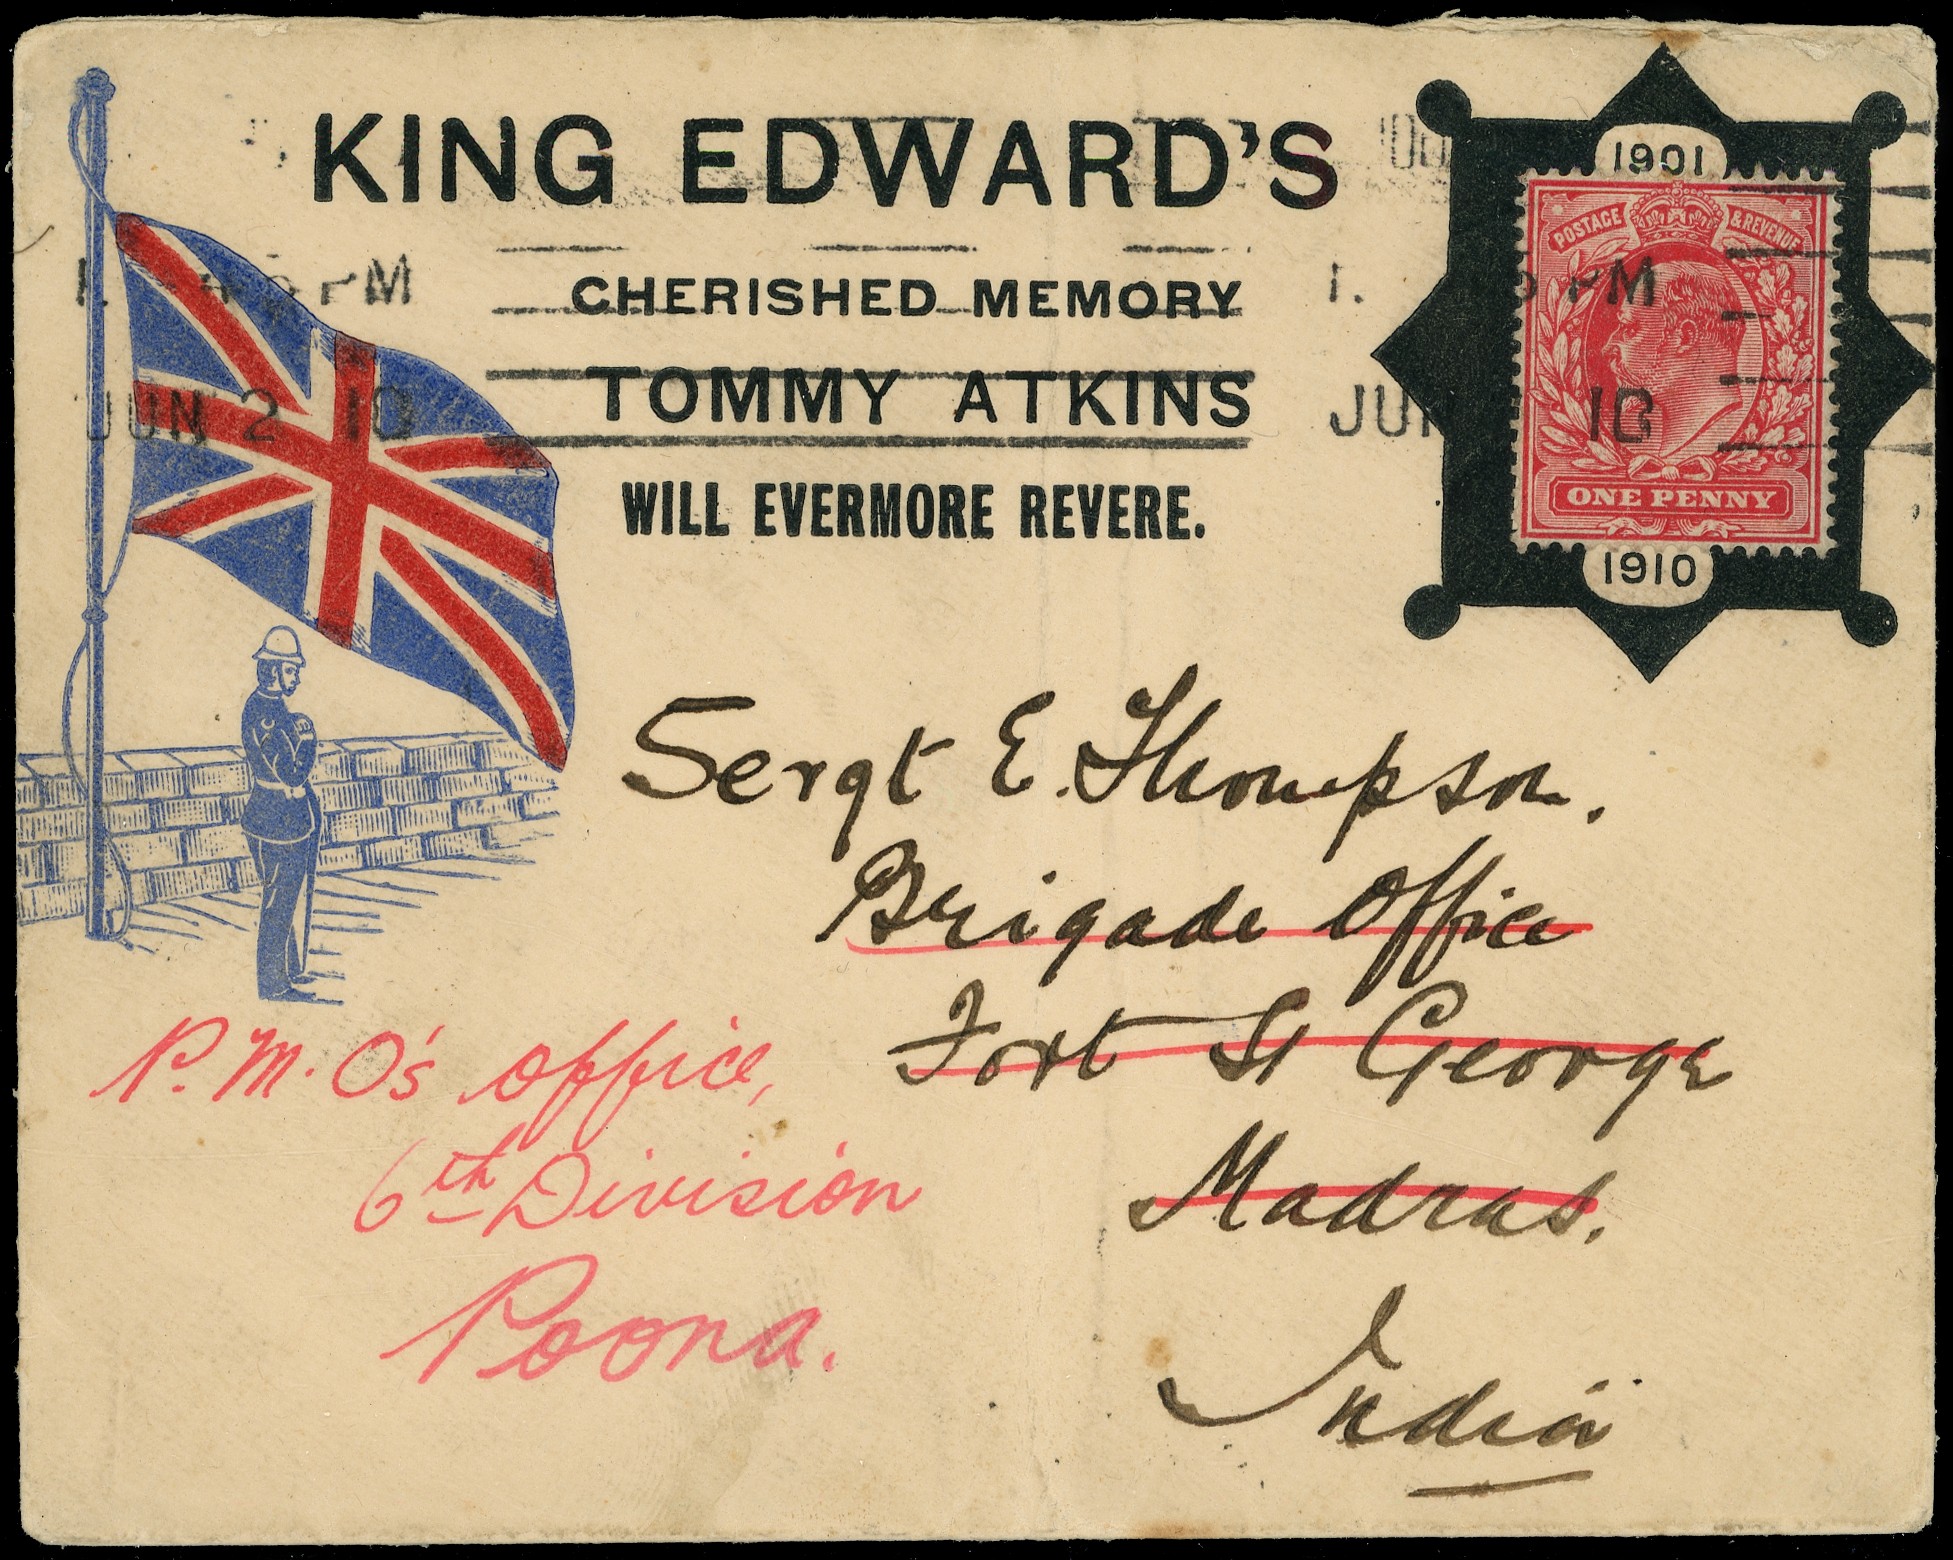 KING EDWARD'S
CHERISHED MEMORY
TOMMY ATKINS
WILL EVERMORE REVERE.
1901
POSTAGE & REVENUE
ONE PENNY
1910
PM
JUN 2 10
PM
10
Sergt E. Thompson.
Brigade Office
Fort St George
Madras.
India
P. M. O's Office,
6th Division
Poona.